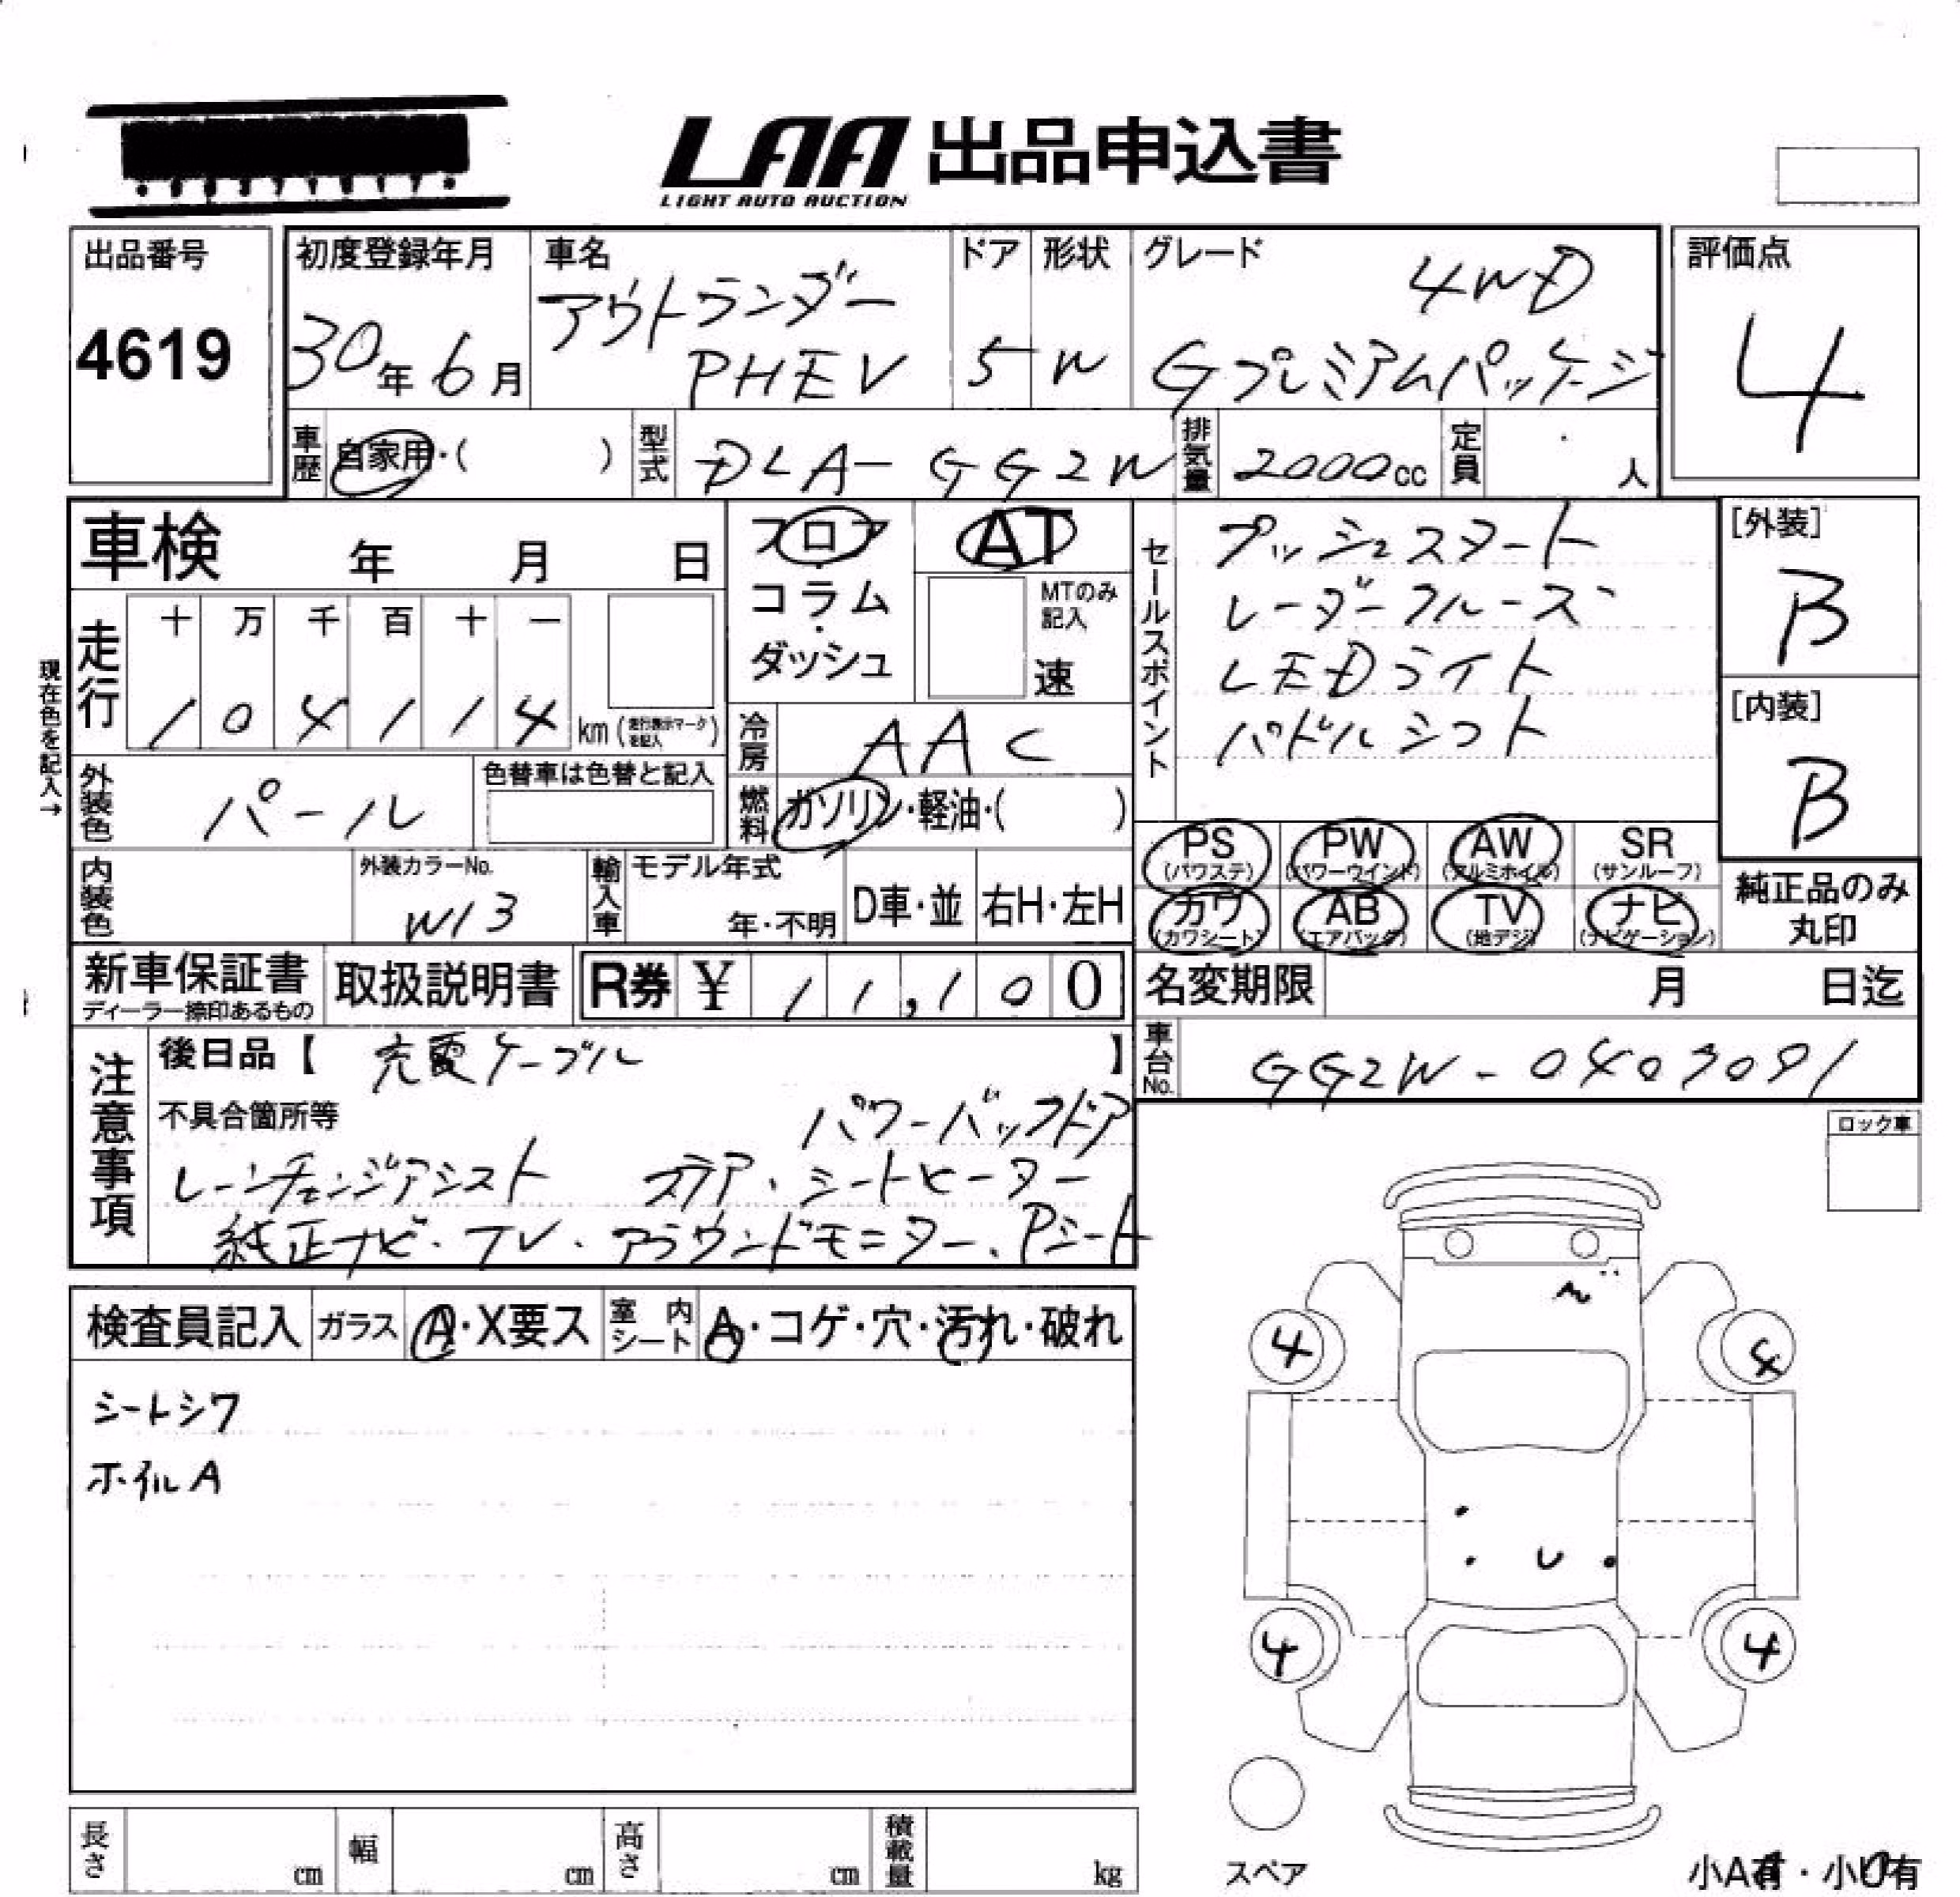 LAA 出品申込書
LIGHT AUTO AUCTION
出品番号
4619
初度登録年月
30年6月
車名
アウトランダー
PHEV
ドア
5
形状
W
グレード
4WD
Gプレミアムパッケージ
評価点
4
車歴
自家用・( )
型式
DLA-GG2W
排気量
2000cc
定員
人
車検 年 月 日
走行
十 万 千 百 十 一
1 0 4 1 1 4 km (走行表示マークを記入)
現在色を記入→
外装色
パール
色替車は色替と記入
内装色
外装カラーNo.
W13
フロア
コラム
・
ダッシュ
AT
MTのみ
記入
速
冷房
AAC
燃料
ガソリン・軽油・( )
輸入車
モデル年式
年・不明
D車・並
右H・左H
セールスポイント
プッシュスタート
レーダークルーズ
LEDライト
パドルシフト
[外装]
B
[内装]
B
PS
(パワステ)
PW
(パワーウインド)
AW
(アルミホイル)
SR
(サンルーフ)
カワ
(カワシート)
AB
(エアバッグ)
TV
(地デジ)
ナビ
(ナビゲーション)
純正品のみ
丸印
新車保証書
ディーラー捺印あるもの
取扱説明書
R券 ¥ 11,100
名変期限 月 日迄
車台No.
GG2W-0407091
注意事項
後日品【 充電ケーブル 】
不具合箇所等 パワーバックドア
レーンチェンジアシスト ステア・シートヒーター
純正ナビ・TV・アラウンドモニター、Pシート
ロック車
検査員記入
ガラス
A・X要ス
室内
シート
A・コゲ・穴・汚れ・破れ
シートシワ
ホイルA
4
4
4
4
スペア
小A有・小U有
長さ cm
幅 cm
高さ cm
積載量 kg